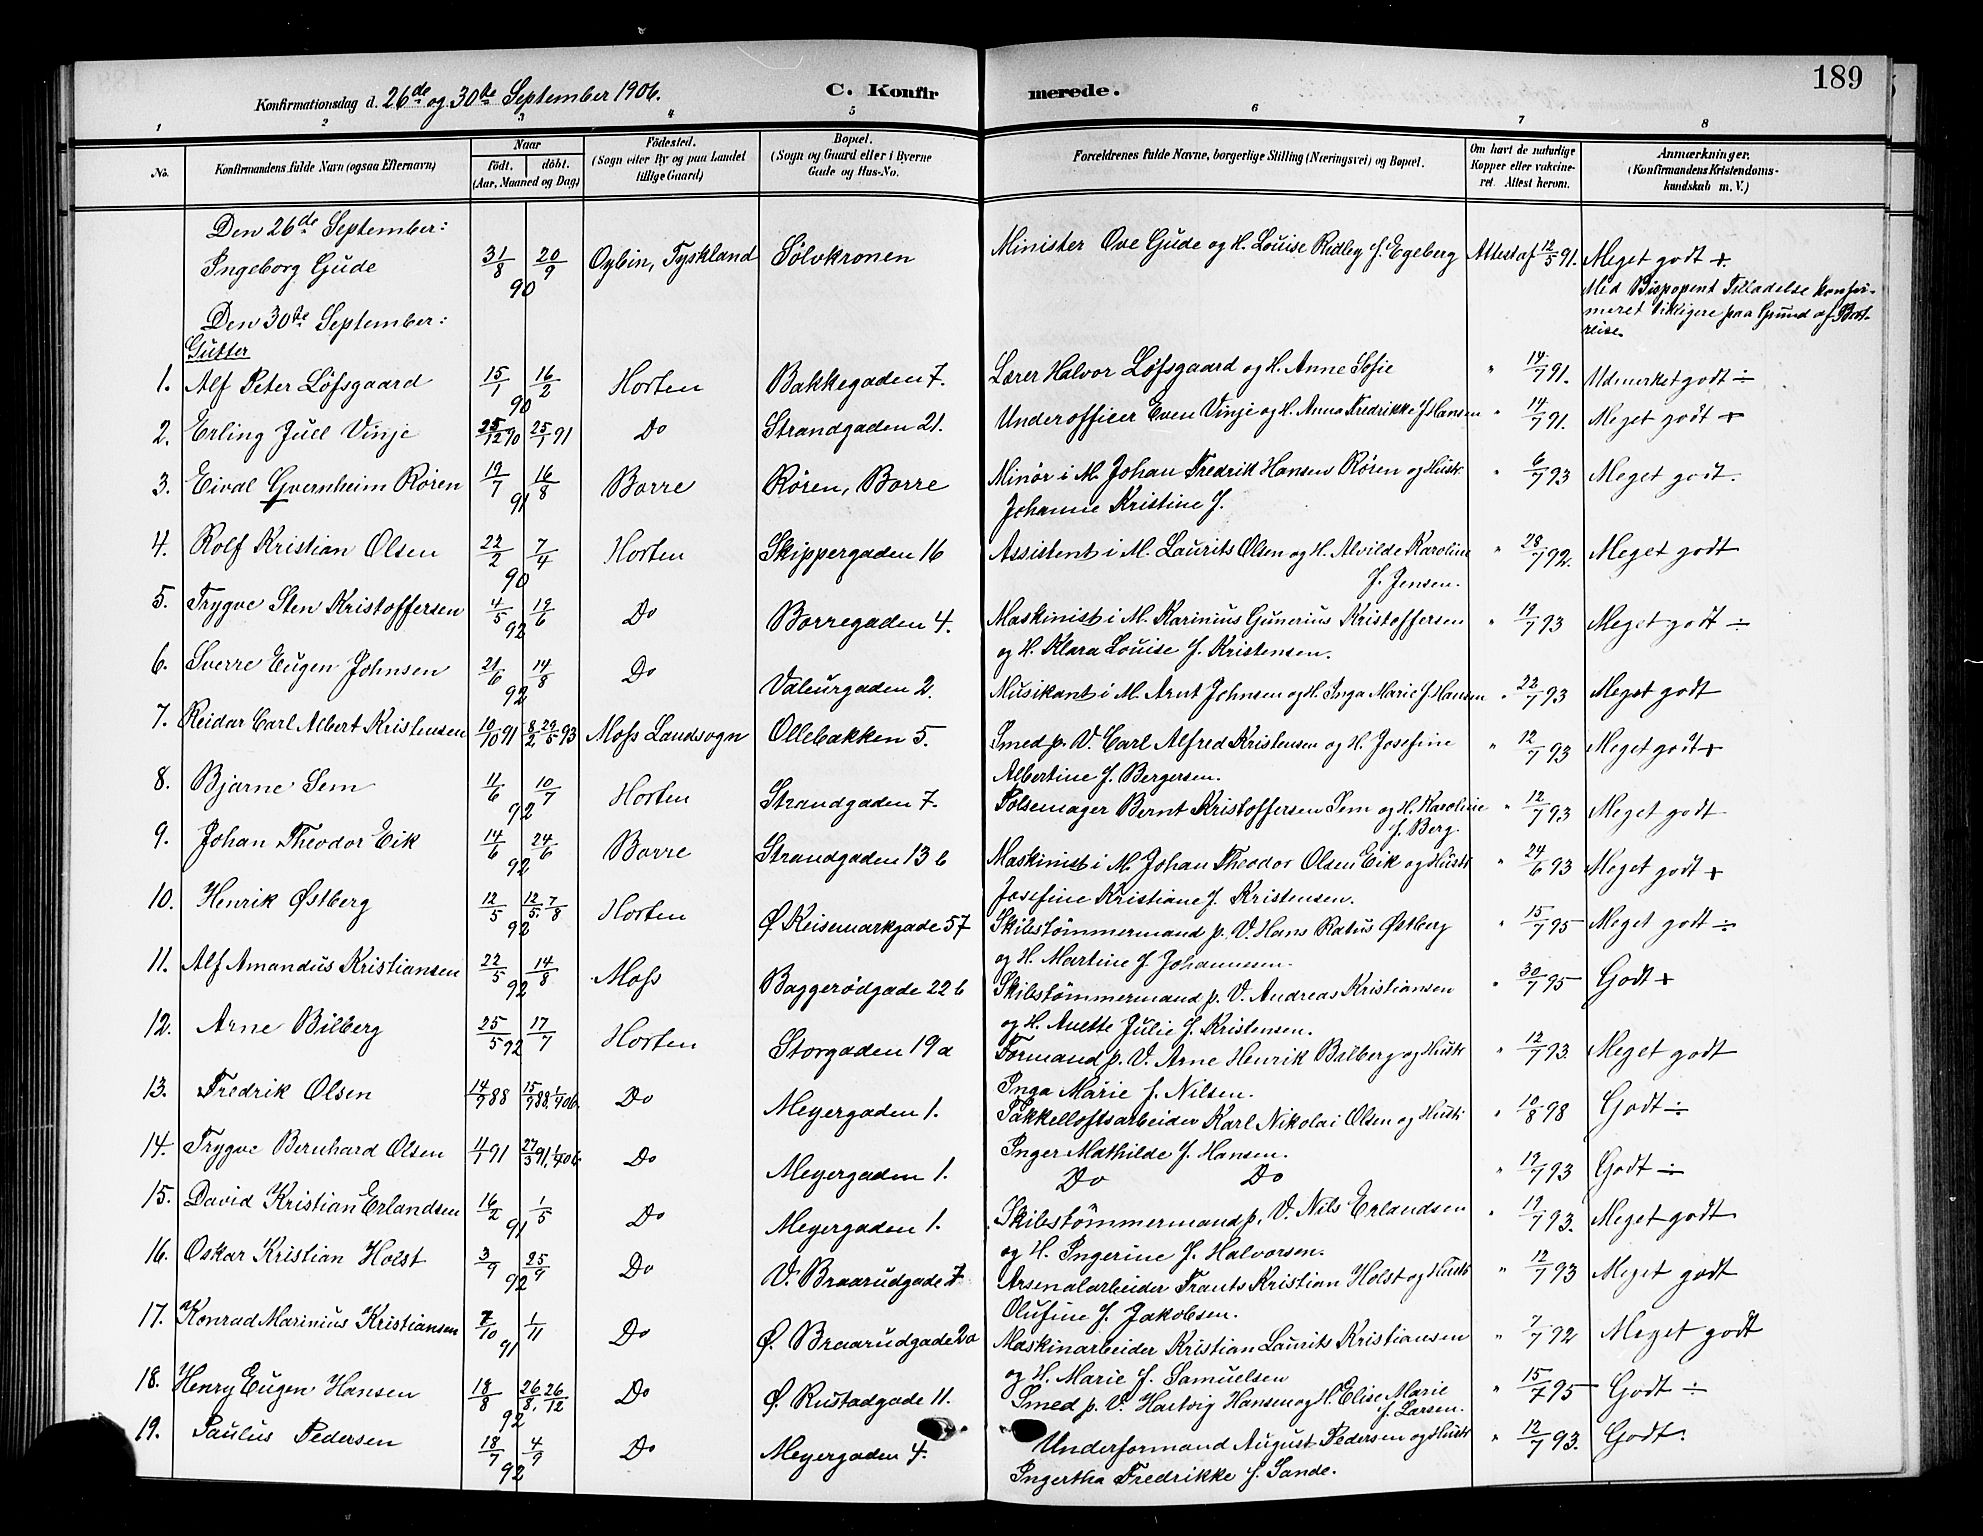 189
Konfirmationsdag d. 26de og 30te September 1906.
C. Konfir merede.
1 2 3 4 5 6 7 8
No. Konfirmandens fulde Navn (ogsaa Efternavn) Naar født. døbt. (Aar, Maaned og Dag) Fødested. (Sogn eller By og paa Landet tillige Gaard) Bopæl. (Sogn og Gaard eller i Byerne Gade og Hus-No. Forældrenes fulde Navne, borgerlige Stilling (Næringsvei) og Bopæl. Om havt de naturlige Kopper eller vakcineret. Attest herom. Anmærkninger. (Konfirmandens Kristendomskundskab m. V.)
Den 26de September:
Ingeborg Gude 31/8 20/9 90 Oybin, Tyskland Sølvkronen Minister Ove Gude og H. Louise Ridley f. Egeberg Attest af 12/5 91. Meget godt +.
Med Bispopent Tilladelse konfir-
meret tidligere paa Grund af Bort-
reise.
Den 30te September:
Gutter
1. Alf Peter Löfsgaard 15/1 16/2 90 Horten Bakkegaden 7. Lærer Halvor Löfsgaard og H. Anne Sofie " 14/7 91. Udmerket godt ÷
2. Erling Juel Vinje 25/12 90 25/1 91 Do Strandgaden 21. Underofficer Even Vinje og H. Anna Fredrikke f. Hansen " 14/7 91. Meget godt +
3. Eival Gvernheim Røren 19/7 16/8 91 Borre Røren, Borre Minør i M. Johan Fredrik Hansen Røren og Hustr " 6/7 93 Meget godt.
Johanne Kristine f.
4. Rolf Kristian Olsen 22/2 7/4 90 Horten Skippergaden 16 Assistent i M. Laurits Olsen og H. Alvilde Karoline " 28/7 92. Meget godt
f. Jensen.
5. Trygve Sten Kristoffersen 4/5 19/6 92 Do Borregaden 4. Maskinist i M. Karinius Gunerius Kristoffersen " 19/7 93 Meget godt ÷
og H. Klara Louise f. Kristensen.
6. Sverre Eugen Johnsen 21/6 14/8 92 Do Valeurgaden 2. Musikant i M. Arnt Johnsen og H. Inga Marie f. Hansen " 22/7 93 Meget godt
7. Reidar Carl Albert Kristensen 10/10 91 8/2 29/5 93 Moss Landsogn Ollebakken 5. Smed p. V. Carl Alfred Kristensen og H. Josefine " 12/7 93 Meget godt +
Albertine f. Bergersen.
8. Bjarne Sem 11/6 10/7 92 Horten Strandgaden 7. Pølsemager Bernt Kristoffersen Sem og H. Karoline " 12/7 93 Meget godt
f. Berg.
9. Johan Theodor Eik 14/6 24/6 92 Borre Strandgaden 13 b Maskinist i M. Johan Theodor Olsen Eik og Hustr " 24/6 93 Meget godt +
Josefine Kristiane f. Kristensen.
10. Henrik Østberg 12/5 12/5. 7/8 92 Horten Ø. Keisemarkgade 57 Skibstømmermand p. V. Hans Ratus Østberg " 15/7 95 Meget godt ÷
og H. Martine f. Johannesen.
11. Alf Amandus Kristiansen 22/5 14/8 92 Moss Baggerødgade 22 b Skibstømmermand p. V. Andreas Kristiansen " 30/7 95 Godt +
og H. Anette Julie f. Kristensen.
12. Arne Bilberg 25/5 92 17/7 Horten Storgaden 19 a Formand p. V. Arne Henrik Bilberg og Hustr " 12/7 93. Meget godt
Inga Marie f. Nilsen.
13. Fredrik Olsen 14/7 88 15/7 88. 1/7 06. Do Meyergaden 1. Takkelloftsarbeider Karl Nikolai Olsen og Hustr " 10/8 98 Godt ÷
Inger Mathilde f. Hansen.
14. Trygve Bernhard Olsen 4/1 91 27/3 91, 1/7 06 Do Meyergaden 1. Do Do " 19/7 93 Godt ÷
15. David Kristian Erlandsen 16/2 1/5 91 Do Meyergaden 1. Skibstømmermand p. V. Nils Erlandsen " 19/7 93. Meget godt
og H. Ingerine f. Halvorsen.
16. Oskar Kristian Holst 3/9 25/9 92 Do V. Braarudgade 7 Arsenalarbeider Frants Kristian Holst og Hustr " 12/7 93 Meget godt
Olufine f. Jakobsen.
17. Konrad Marinius Kristiansen 7/10 1/11 91 Do Ø. Braarudgade 20 Maskinarbeider Kristian Laurits Kristiansen " 7/7 92 Meget godt
og H. Marie f. Samuelsen
18. Henry Eugen Hansen 18/8 26/8. 26/12 92 Do Ø. Rustadgade 11. Smed p. V. Hartvig Hansen og H. Elise Marie " 15/7 95 Godt ÷
f. Larsen.
19. Paulus Pedersen 18/7 4/9 92 Do Meyergaden 4. Underformand August Pedersen og Hustr " 12/7 93. Godt.
Ingertha Fredrikke f. Sande.